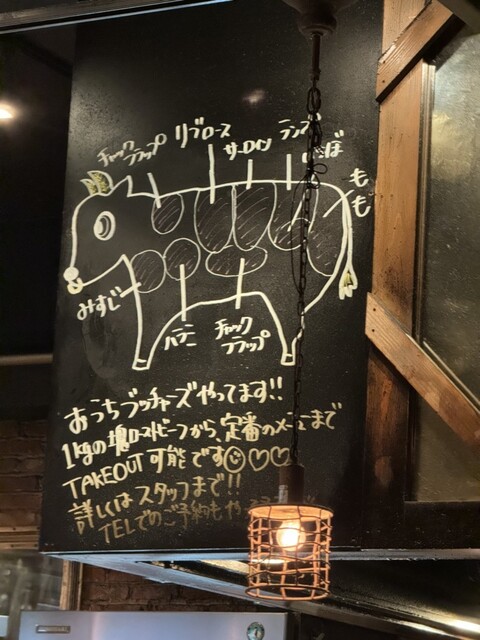 チャック
フラップ
リブロース
サーロイン
ランプ
もも
みすじ
ハラミ
チャック
フラップ
おうちブッチャーズやってます!!
1kgの塊ローストビーフから、定番のメニューまで
TAKEOUT可能です☺♡♡
詳しくはスタッフまで!!
TELでのご予約もや